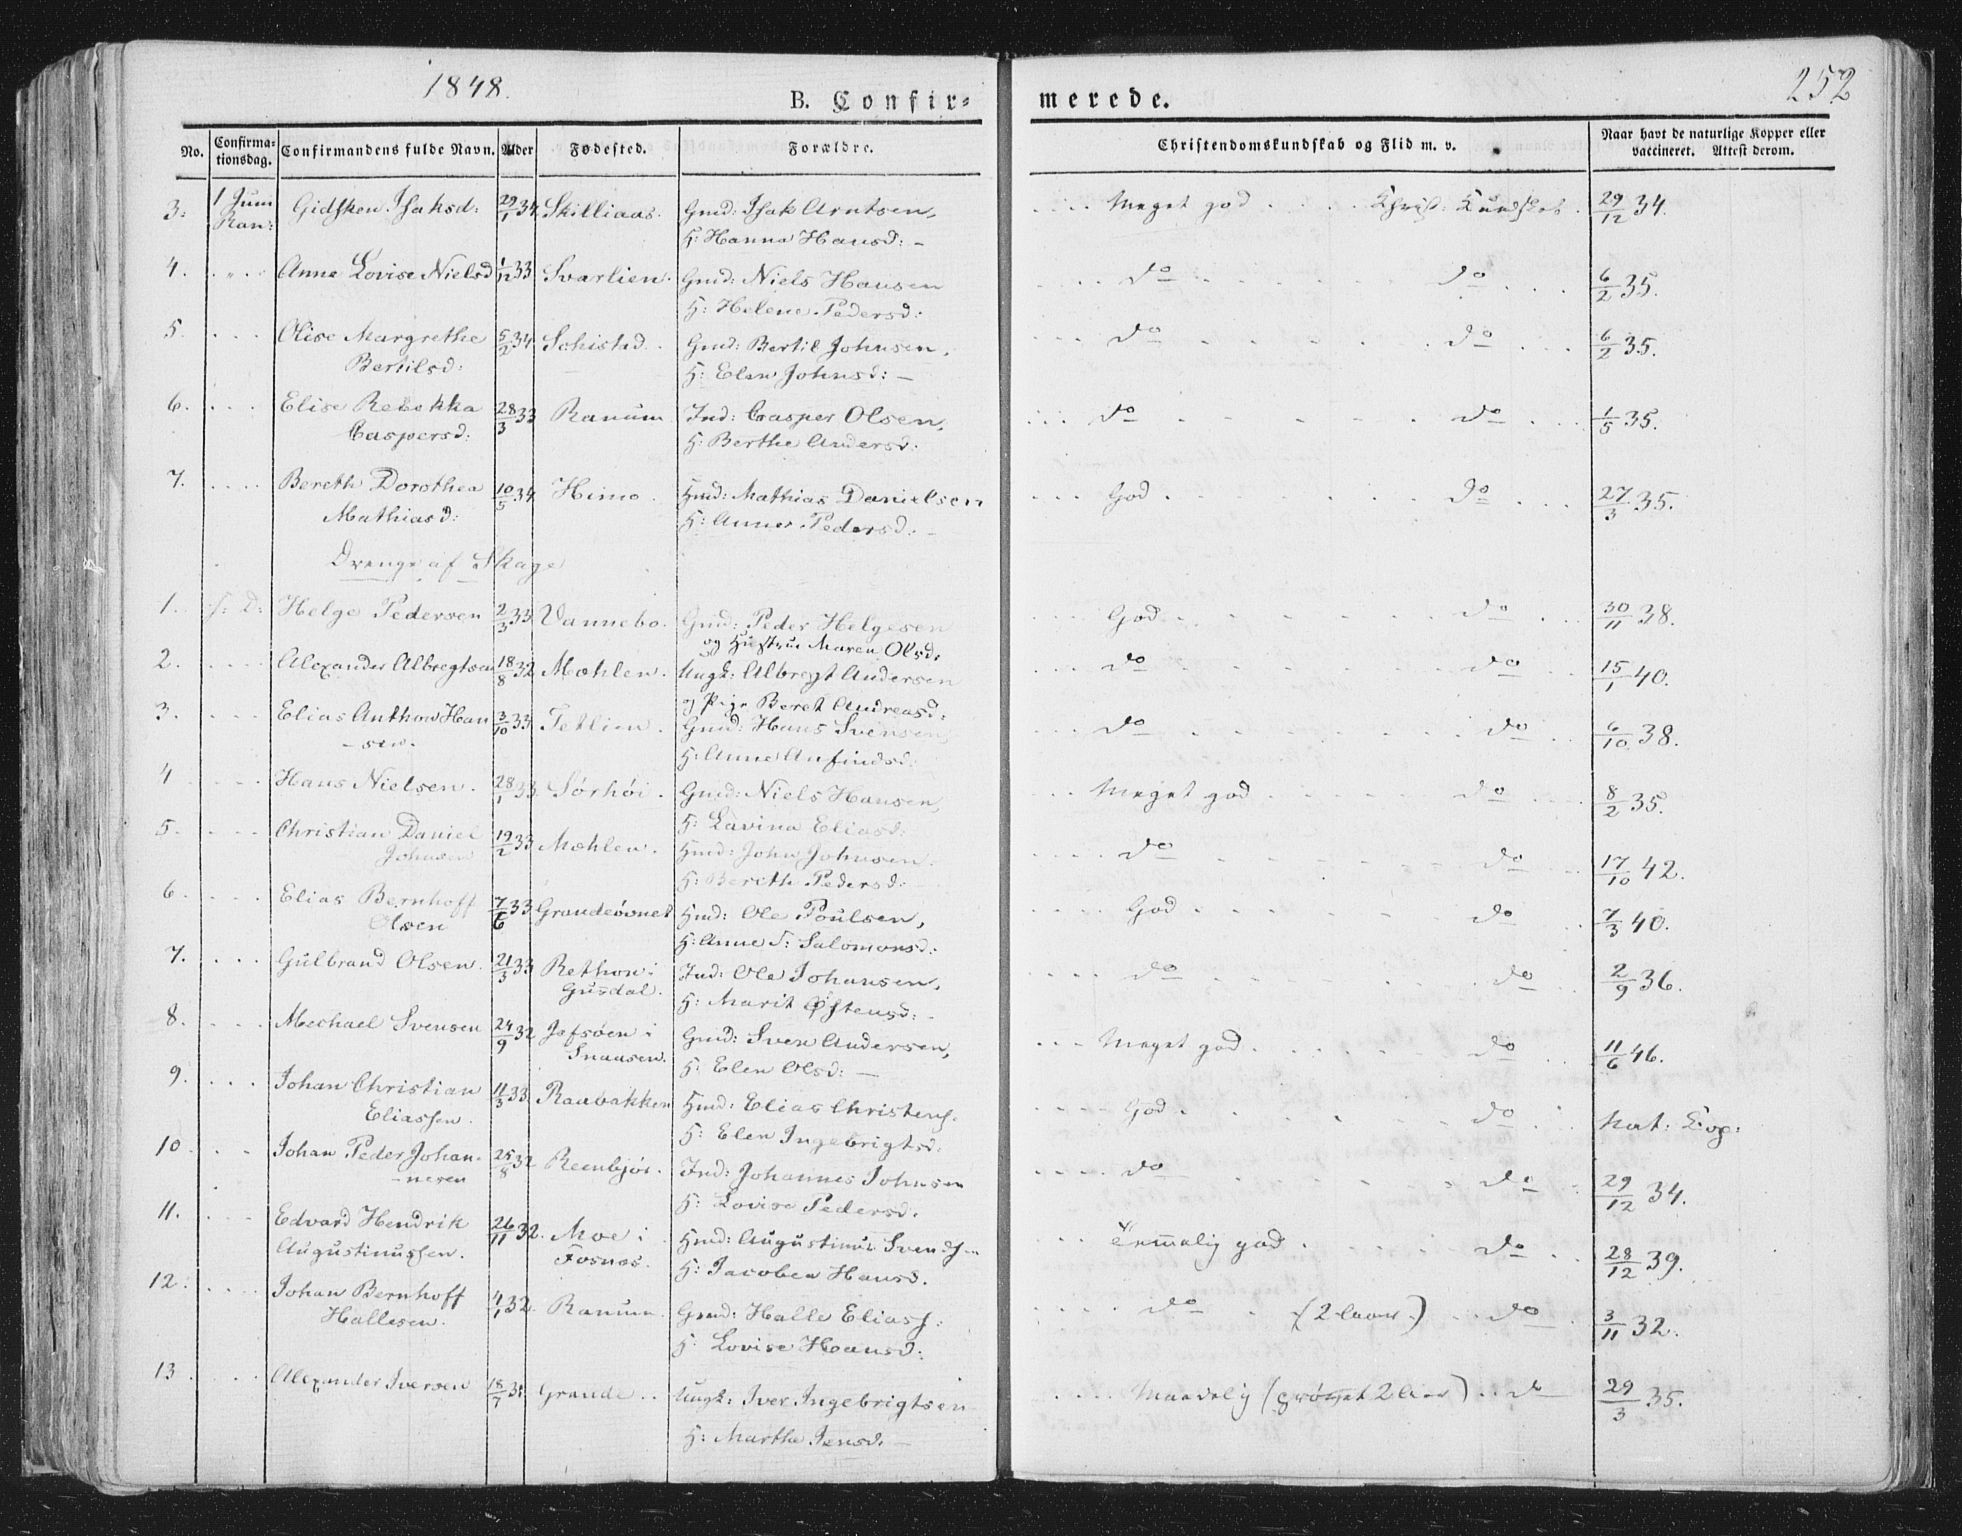 1848.
252
B. Confir-
merede.
No.
Confirma-
tionsdag.
Confirmandens fulde Navn.
Alder
Fødested.
Forældre.
Christendomskundskab og Flid m. v.
Naar havt de naturlige Kopper eller
vaccineret. Attest derom.
3: 1 Juni Gidsken Isaksd: 29/1 34. Skilliaas. Gmd: Isak Arntsen, Meget god Christ: Kundskab. 29/12 34.
Ran: H: Hanna Hansd: -
4. Anne Lovise Nielsd 1/12 33 Svarlien. Gmd: Niels Hansen do do 6/2 35.
H: Helene Pedersd:
5. Olise Margrethe 5/2 34 Schistad. Gmd: Bertil Johnsen, do do 6/2 35.
Bertilsd: H: Elen Johnsd: -
6. Elise Rebekka 28/3 33 Ranum Ind: Casper Olsen, do do 1/5 35.
Caspersd: H: Berthe Andersd.
7. Bereth Dorothea 10/5 34 Himo. Hmd: Mathias Danielsen God do 27/3 35.
Mathiasd: H: Anne Pedersd. -
Drenge af Skage
1. S: D: Helge Pedersen 2/3 33 Vannebo. Gmd: Peder Helgesen God do 30/11 38.
og Hustrue Maren Olsd:
2. Alexander Albregtsen 18/8 32 Moehlen. Ungk: Albregt Andersen do do 15/1 40.
og Pige Beret Andreasd:
3. Elias Anthon Han 3/10 33 Tetlien. Gmd: Hans Svensen do do 6/10 38.
-sen. H: Anne Anfindsd:
4 Hans Nielsen. 28/1 33 Sørhøi. Gmd: Niels Hansen, Meget god do 8/2 35.
H: Lavina Eliasd:
5. Christian Daniel 19/2 33 Moehlen. Hmd: John Johnsen. do do 17/10 42.
Johnsen H: Bereth Pedersd:
6. Elias Bernhoff 7/6 33 Grandeøvnet Hmd: Ole Poulsen, God do 7/3 40.
Olsen H: Anne S: Salomonsd:
7. Gulbrand Olsen. 21/3 33 Rethon i Ind: Ole Johansen, do do 2/9 36.
Gusdal. H: Marit Østensd:
8. Mechael Svensen 24/9 32 Jefsøen i Gmd: Sven Andersen, Meget god do 11/6 46.
Snaasen. H: Elen Olsd: -
9. Johan Christian 11/3 33 Raabakken Hmd: Elias Christens. God do Nat: Kop:
Eliassen. H: Elen Ingebrigtsd.
10. Johan Peder Johan- 25/8 32 Reenbjør. Ind: Johannes Johnsen do do 29/12 34.
-nesen H: Lovise Pedersd.
11. Edvard Hendrik 26/11 32. Moe i Hmd: Augustinus Svends.. Temmelig god do 28/12 39.
Augustinussen. Fosnæs. H: Jacobea Hansd.
12. Johan Bernhoff 4/1 32. Ranum Gmd: Halle Elias: do (2 Aar) do 3/11 32.
Hallesen. H: Lovise Hansd:
13. Alexander Iversen 18/7 31 Grande Ungk: Iver Ingebrigtsen Maadelig (prøvet 2 Aar) do 29/3 35.
H: Marthe Jensd. -